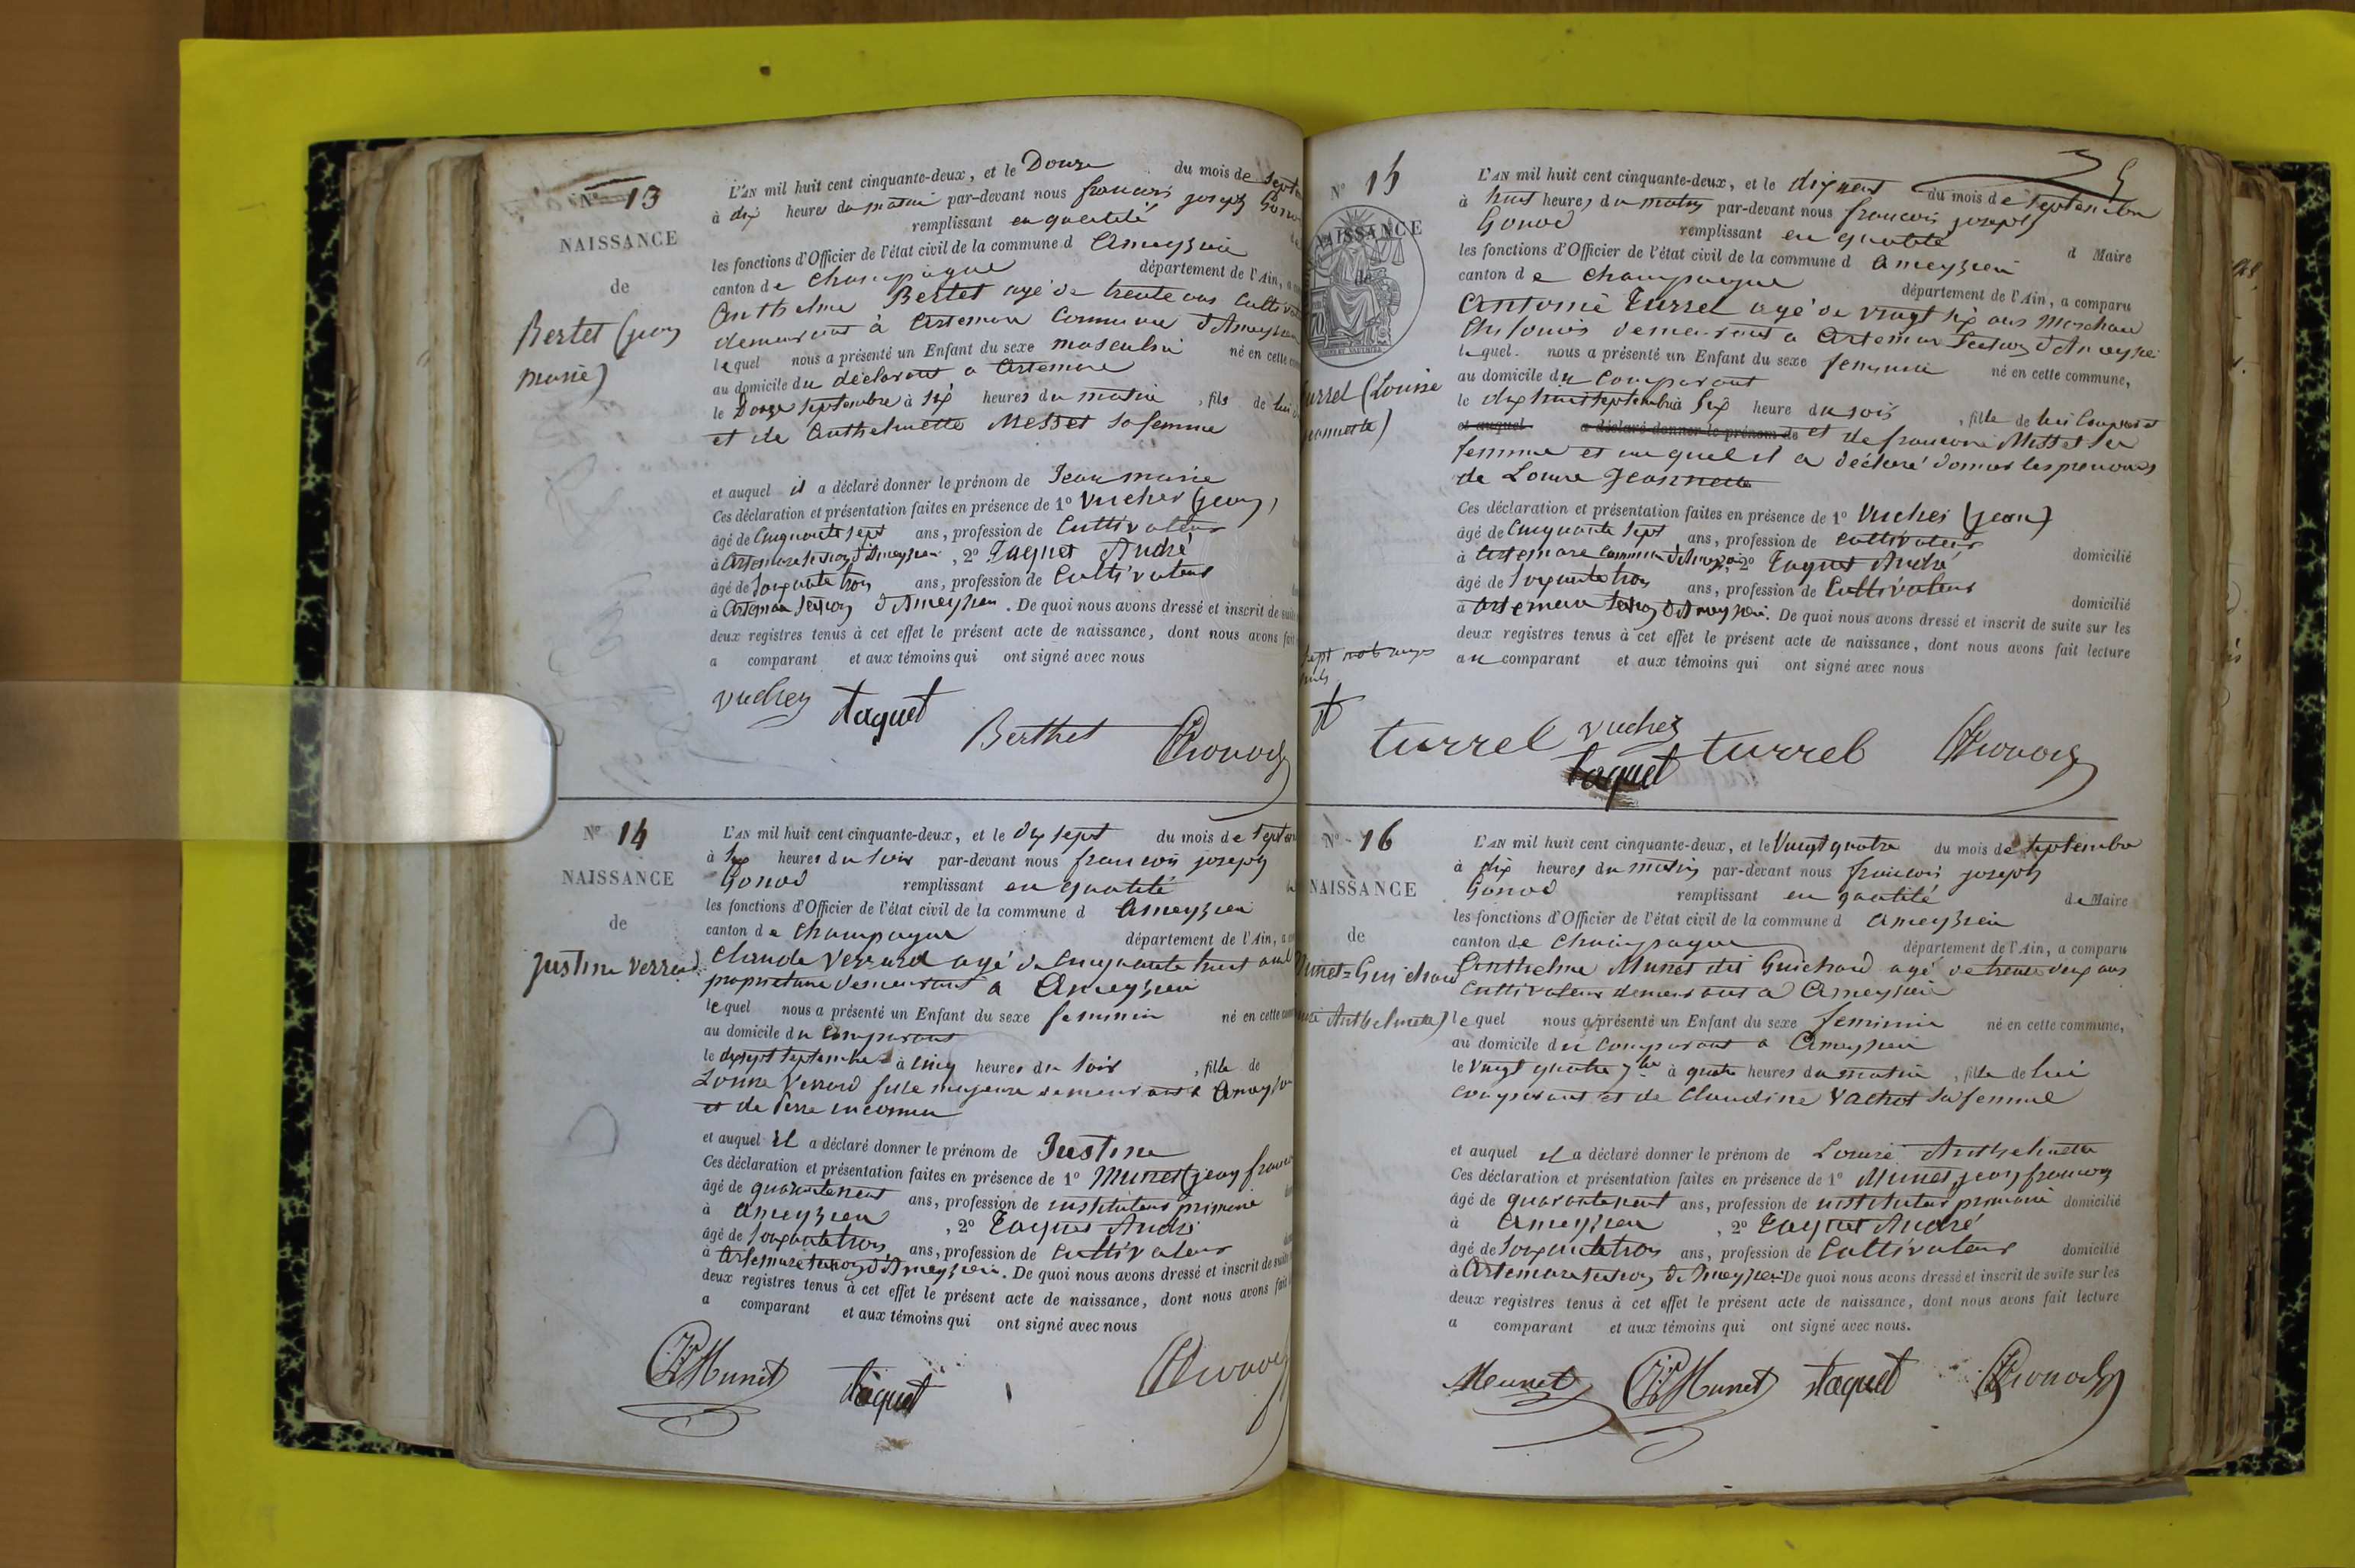 N° 13
NAISSANCE
de
Bertet (jean
marie)
L'AN mil huit cent cinquante-deux, et le Douze du mois de Septem
à dix heures du matin par-devant nous francois joseph Gono
remplissant en quallité
les fonctions d'Officier de l'état civil de la commune d Ameyzieu
canton de Champagne département de l'Ain, a
Anthelme Bertet agé de trente ans Cultivat
demeurant à Artemare Commune d'Ameyzieu
lequel nous a présenté un Enfant du sexe masculin né en cette com
au domicile du déclarant a Artemare
le Douze Septembre à six heures du matin , fils de lui
et de Anthelmette Messet sa femme
et auquel il a déclaré donner le prénom de Jean marie
Ces déclaration et présentation faites en présence de 1° Vucher (jean)
âgé de Cinquante sept ans, profession de Cultivateur
à Artemare section d'Ameyzieu , 2° Taquet André
âgé de Soixante trois ans, profession de Cultivateur
à Artemare section d'Ameyzieu . De quoi nous avons dressé et inscrit de suite
deux registres tenus à cet effet le présent acte de naissance, dont nous avons fait
a comparant et aux témoins qui ont signé avec nous
vucher taquet
Berthet Gonod
N° 14
NAISSANCE
de
Justine Verrard
L'AN mil huit cent cinquante-deux, et le dix sept du mois de Septem
à six heures du soir par-devant nous francois joseph
Gonod remplissant en quallité
les fonctions d'Officier de l'état civil de la commune d Ameyzieu
canton de Champagne département de l'Ain, a
Claude Verrard agé de Cinquante huit ans
propriétaire demeurant a Ameyzieu
lequel nous a présenté un Enfant du sexe feminin né en cette com
au domicile du Comparant
le dix sept septembre à cinq heures du soir , fille de
Louise Verrard fille majeure demeurant a Ameyzieu
et de Père inconnu
et auquel il a déclaré donner le prénom de Justine
Ces déclaration et présentation faites en présence de 1° Munet (jean franc
âgé de quarante neuf ans, profession de instituteur primaire
à Ameyzieu , 2° Taquet André
âgé de Soixante trois ans, profession de Cultivateur
à Artemare section d'Ameyzieu . De quoi nous avons dressé et inscrit de suite
deux registres tenus à cet effet le présent acte de naissance, dont nous avons fait
a comparant et aux témoins qui ont signé avec nous
Munet taquet Gonod
N° 15
NAISSANCE
de
urrel (Louise
jeannette)
L'AN mil huit cent cinquante-deux, et le dix neuf du mois de Septembre
à huit heures du matin par-devant nous francois joseph
Gonod remplissant en quallité d Maire
les fonctions d'Officier de l'état civil de la commune d Ameyzieu
canton de Champagne département de l'Ain, a comparu
Antoine Turrel agé de vingt six ans Marchand
demeurant a Artemare Section d'Ameyzieu
lequel nous a présenté un Enfant du sexe feminin né en cette commune,
au domicile du comparant
le dix huit septembre à six heure du soir , fille de lui Comparant
et auquel a déclaré donner le prénom de et de francoise Misset sa
femme et auquel il a déclaré donner les prenoms
de Louise Jeannette
Ces déclaration et présentation faites en présence de 1° Vucher (jean)
âgé de Cinquante sept ans, profession de cultivateur
à Artemare commune d'Ameyzieu 2° Taquet André domicilié
âgé de Soixante trois ans, profession de Cultivateur
à Artemare section d'Ameyzieu. De quoi nous avons dressé et inscrit de suite sur les domicilié
deux registres tenus à cet effet le présent acte de naissance, dont nous avons fait lecture
au comparant et aux témoins qui ont signé avec nous
sept mots rayés
nuls
turrel vucher turrel Gonod
taquet
N° 16
NAISSANCE
de
Munet=Guichard
Anthelmette)
L'AN mil huit cent cinquante-deux, et le Vingt quatre du mois de septembre
à dix heures du matin par-devant nous francois joseph
Gonod remplissant en quallité de Maire
les fonctions d'Officier de l'état civil de la commune d Ameyzieu
canton de Champagne département de l'Ain, a comparu
Anthelme Munet dit Guichard agé de trente deux ans
Cultivateur demeurant a Ameyzieu
lequel nous a présenté un Enfant du sexe feminin né en cette commune,
au domicile du comparant a Ameyzieu
le vingt quatre 7bre à quatre heures du matin , fille de lui
comparant et de Claudine Vachot sa femme
et auquel il a déclaré donner le prénom de Louise Anthelmette
Ces déclaration et présentation faites en présence de 1° Munet, jean francois
âgé de quarante neuf ans, profession de instituteur primaire domicilié
à Ameyzieu , 2° Taquet André
âgé de Soixante trois ans, profession de Cultivateur domicilié
à Artemare section d'Ameyzieu De quoi nous avons dressé et inscrit de suite sur les
deux registres tenus à cet effet le présent acte de naissance, dont nous avons fait lecture
a comparant et aux témoins qui ont signé avec nous.
Meunet Munet taquet Gonod